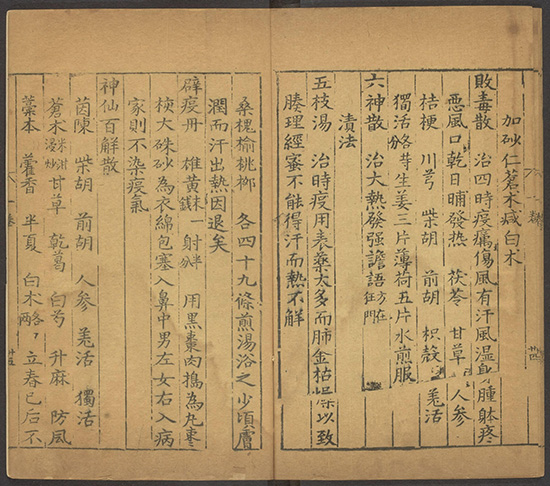 加砂仁蒼术减白术
敗毒散 治四時疫癘傷風有汗風温身腫躰疼
惡風口乾日晡發热 茯苓 甘草 人参
桔梗 川芎 柴胡 前胡 枳殼 羌活
獨活 各 芽生姜三片薄荷五片水煎服
六神散 治大熱發强譫語方在狂門
漬法
五枝湯 治時疫用表藥太多而肺金枯燥以致
腠理經蜜不能得汗而熱不解
桑槐榆桃栁 各四十九條煎湯浴之少頃膚
潤而汗出熱因退矣
辟疫丹 雄黄一錢 射半 用黑棗肉搗為丸棗
核大硃砂為衣綿包塞入鼻中男左女右入病
家則不染疫氣
神仙百解散
茵陳 柴胡 前胡 人参 羌活 獨活
蒼术米泔浸炒 甘草 乾葛 白芍 升麻 防風
藁本 藿香 半夏 白术各兩 立春已后不